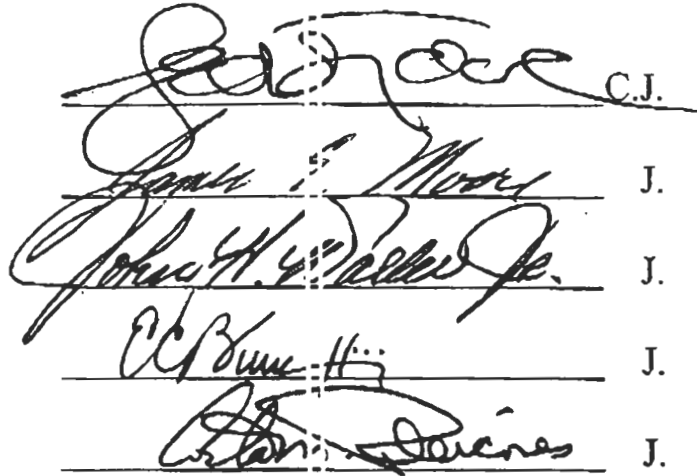 C.J.
James E. Moore J.
John H. Waller Jr. J.
E C Burnett III J.
J.